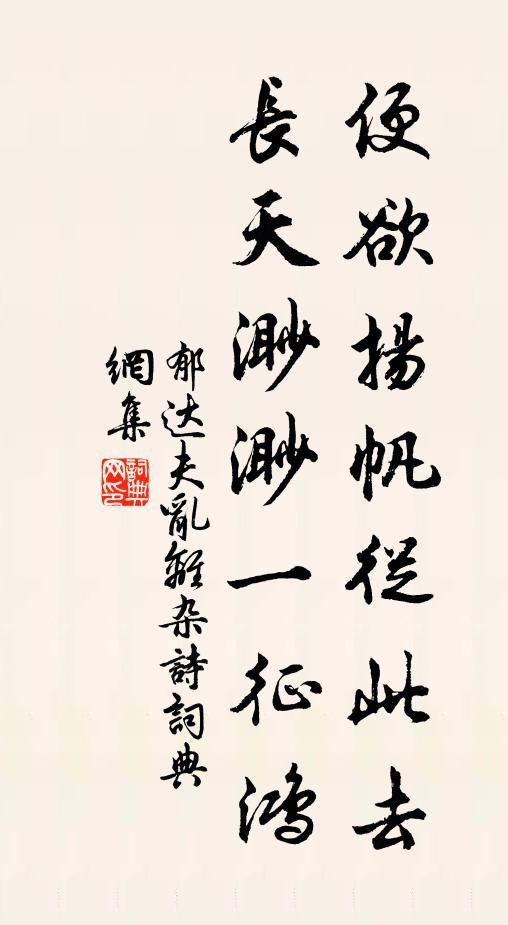 便欲揚帆從此去
長天渺渺一征鴻
郁达夫亂離杂詩詞典
網集
詞典
网印